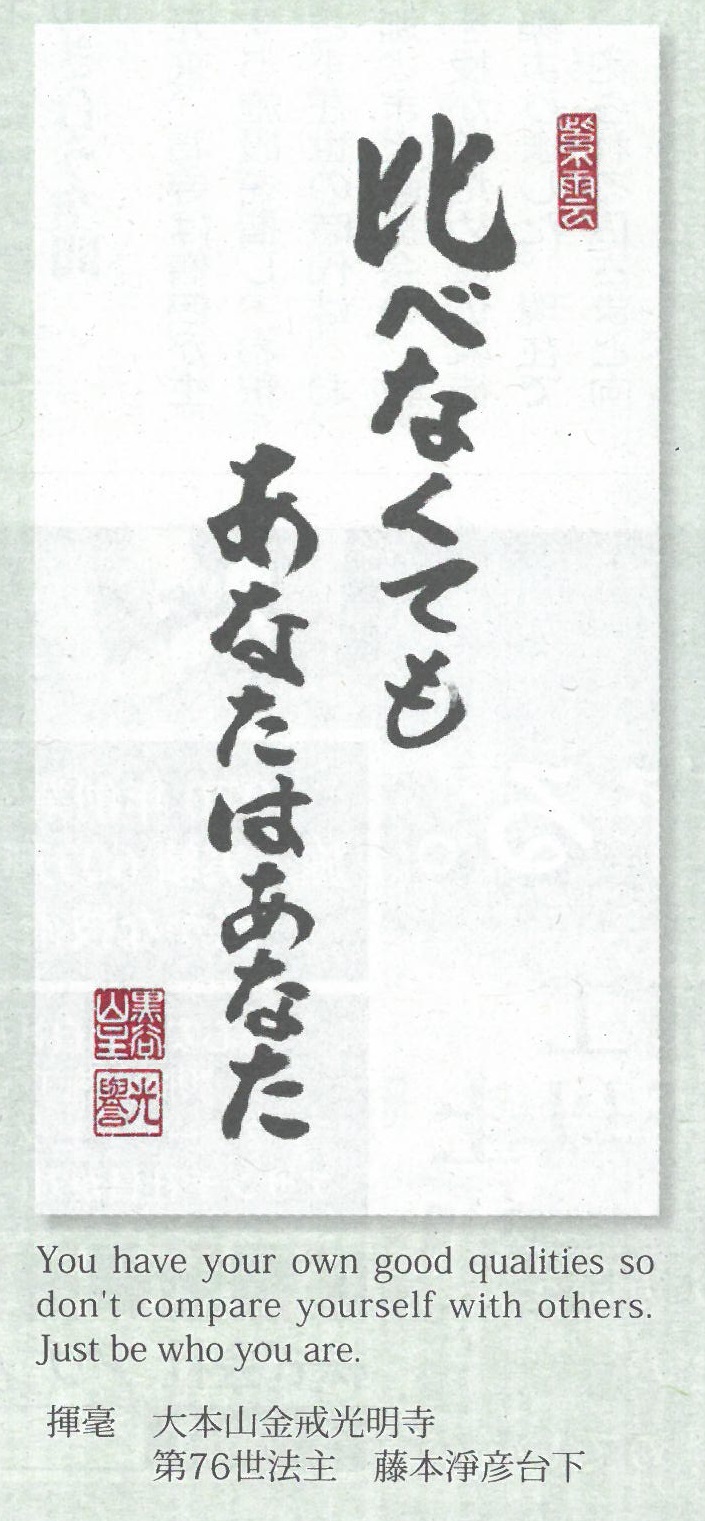 紫雲
比べなくても
あなたはあなた
黒谷
山主
光
譽
You have your own good qualities so
don't compare yourself with others.
Just be who you are.
揮毫　大本山金戒光明寺
第76世法主　藤本淨彦台下